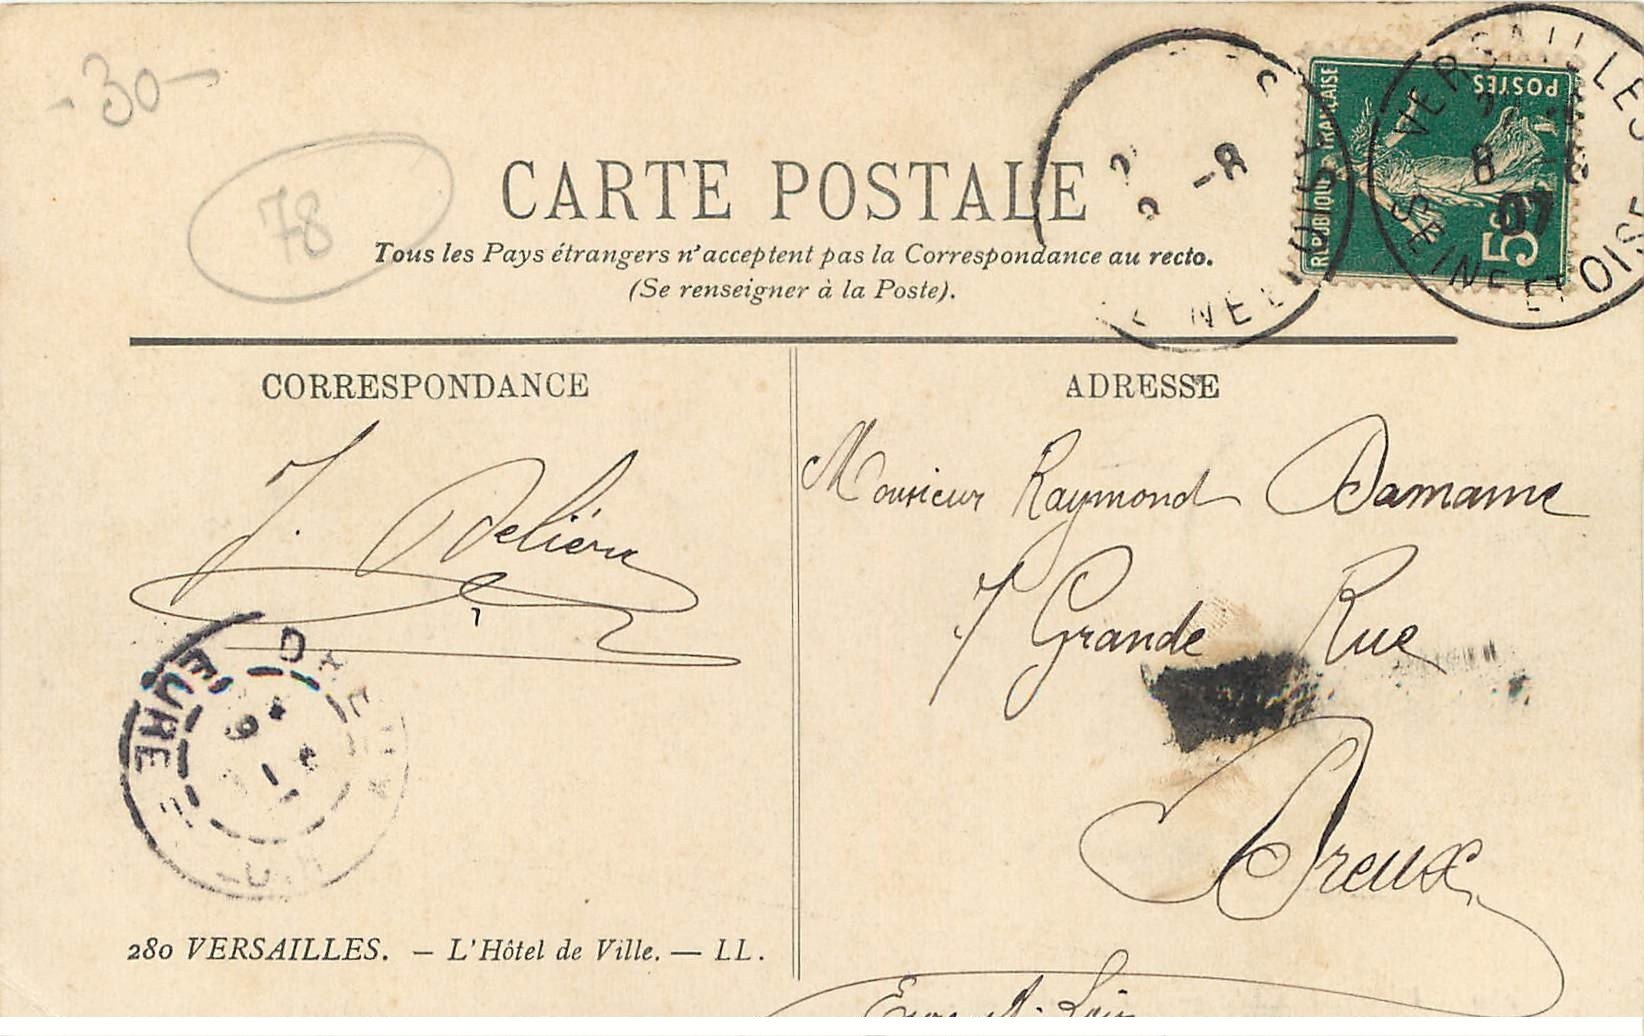 - 30 -
78
CARTE POSTALE
Tous les Pays étrangers n'acceptent pas la Correspondance au recto.
(Se renseigner à la Poste).
RÉPUBLIQUE FRANÇAISE
POSTES
5c
VERSAILLES
8
07
SEINE ET OISE
CORRESPONDANCE
ADRESSE
J. Delière
Monsieur Raymond Damame
7 Grande Rue
Dreux
Eure-et-Loir
DREUX
EURE
280 VERSAILLES. — L'Hôtel de Ville. — LL.